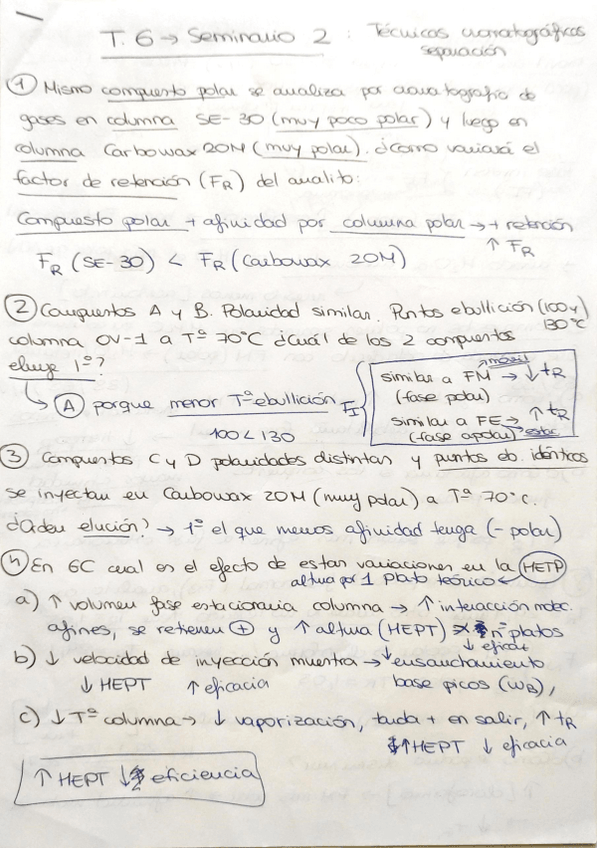 T. 6 → Seminario 2 : Técnicas cromatográficas
separación
① Mismo compuesto polar se analiza por cromatografía de
gases en columna SE-30 (muy poco polar) y luego en
columna Carbowax 20M (muy polar). ¿cómo variará el
factor de retención (FR) del analito:
Compuesto polar + afinidad por columna polar → + retención
↑ FR
FR (SE-30) < FR (Carbowax 20M)
② Compuestos A y B. Polaridad similar. Puntos ebullición (100 y
130ºC
columna OV-1 a Tº 70ºC ¿Cuál de los 2 compuestos
eluye 1º?
↳ Ⓐ porque menor Tº ebullición
100 < 130
FI
móvil
similar a FM → ↓ tR
(fase polar)
similar a FE → ↑ tR
(fase apolar) estac.
③ Compuestos C y D polaridades distintas y puntos eb. idénticos
se inyectan en Carbowax 20M (muy polar) a Tº 70ºC.
¿Orden elución? → 1º el que menos afinidad tenga (- polar)
④ En GC cual es el efecto de estas variaciones en la HETP
altura por 1 plato teórico
a) ↑ volumen fase estacionaria columna → ↑ interacción molec.
afines, se retienen ⊕ y ↑ altura (HEPT) nº platos
↓ eficac
b) ↓ velocidad de inyección muestra → ↓ ensanchamiento
↓ HEPT ↑ eficacia base picos (ωB),
c) ↓ Tº columna → ↓ vaporización, tarda + en salir, ↑ tR
↑ HEPT ↓ eficacia
↑ HEPT ↓ eficiencia